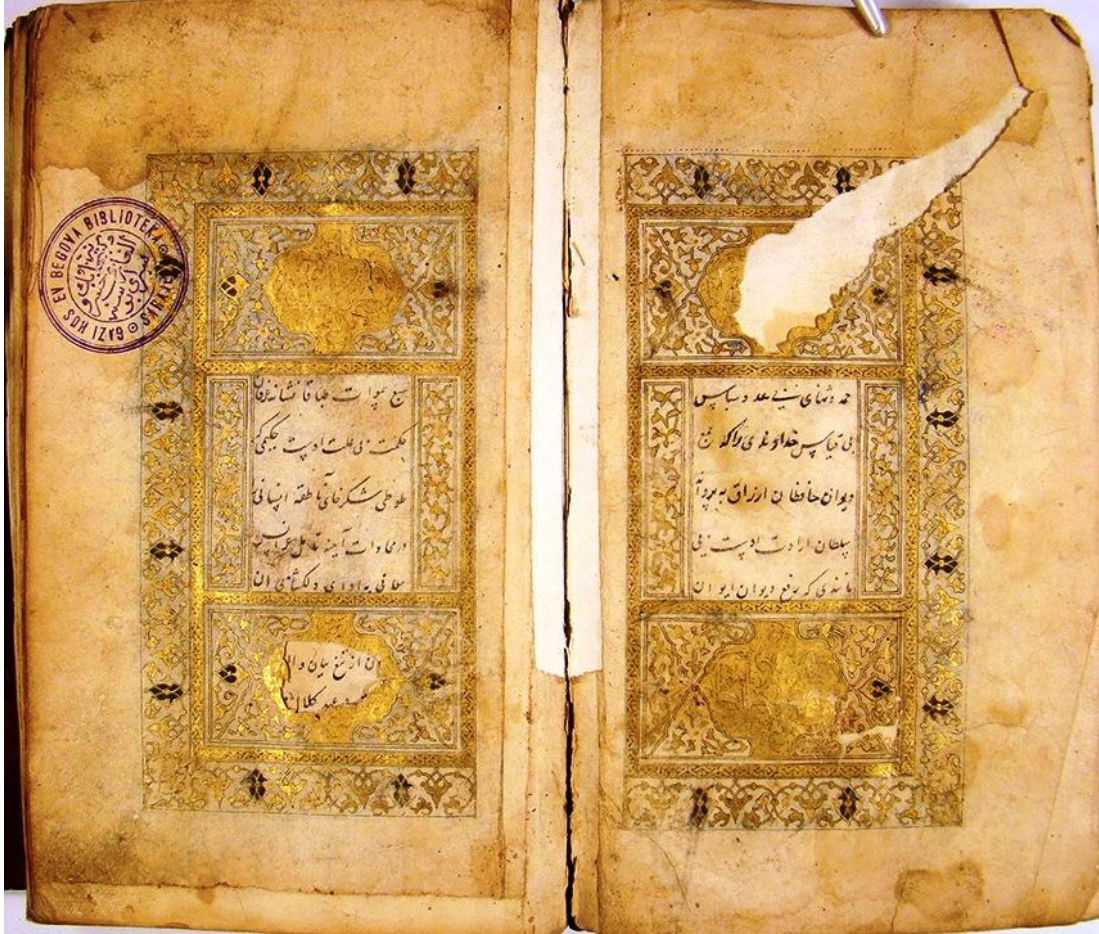 حمد و ثنای بی عد و سپاس
بی قیاس خداوندی را که جمع
دیوان حافظان ارزاق به پروا
سلطان ارادت اوست بی
مانندی که رفع دیوان ایوان
سبع سموات طباقا نشانه عرفان
حکمت بی علت اوست حکیمی که
طوطی شکرخای ناطقه انسانی
در محاذات آینه تأمل عرایس
معانی به ادای دلگشای ان
از تیغ بیان
GAZI HUS EV BEGOVA BIBLIOTEKA SARAJEVO